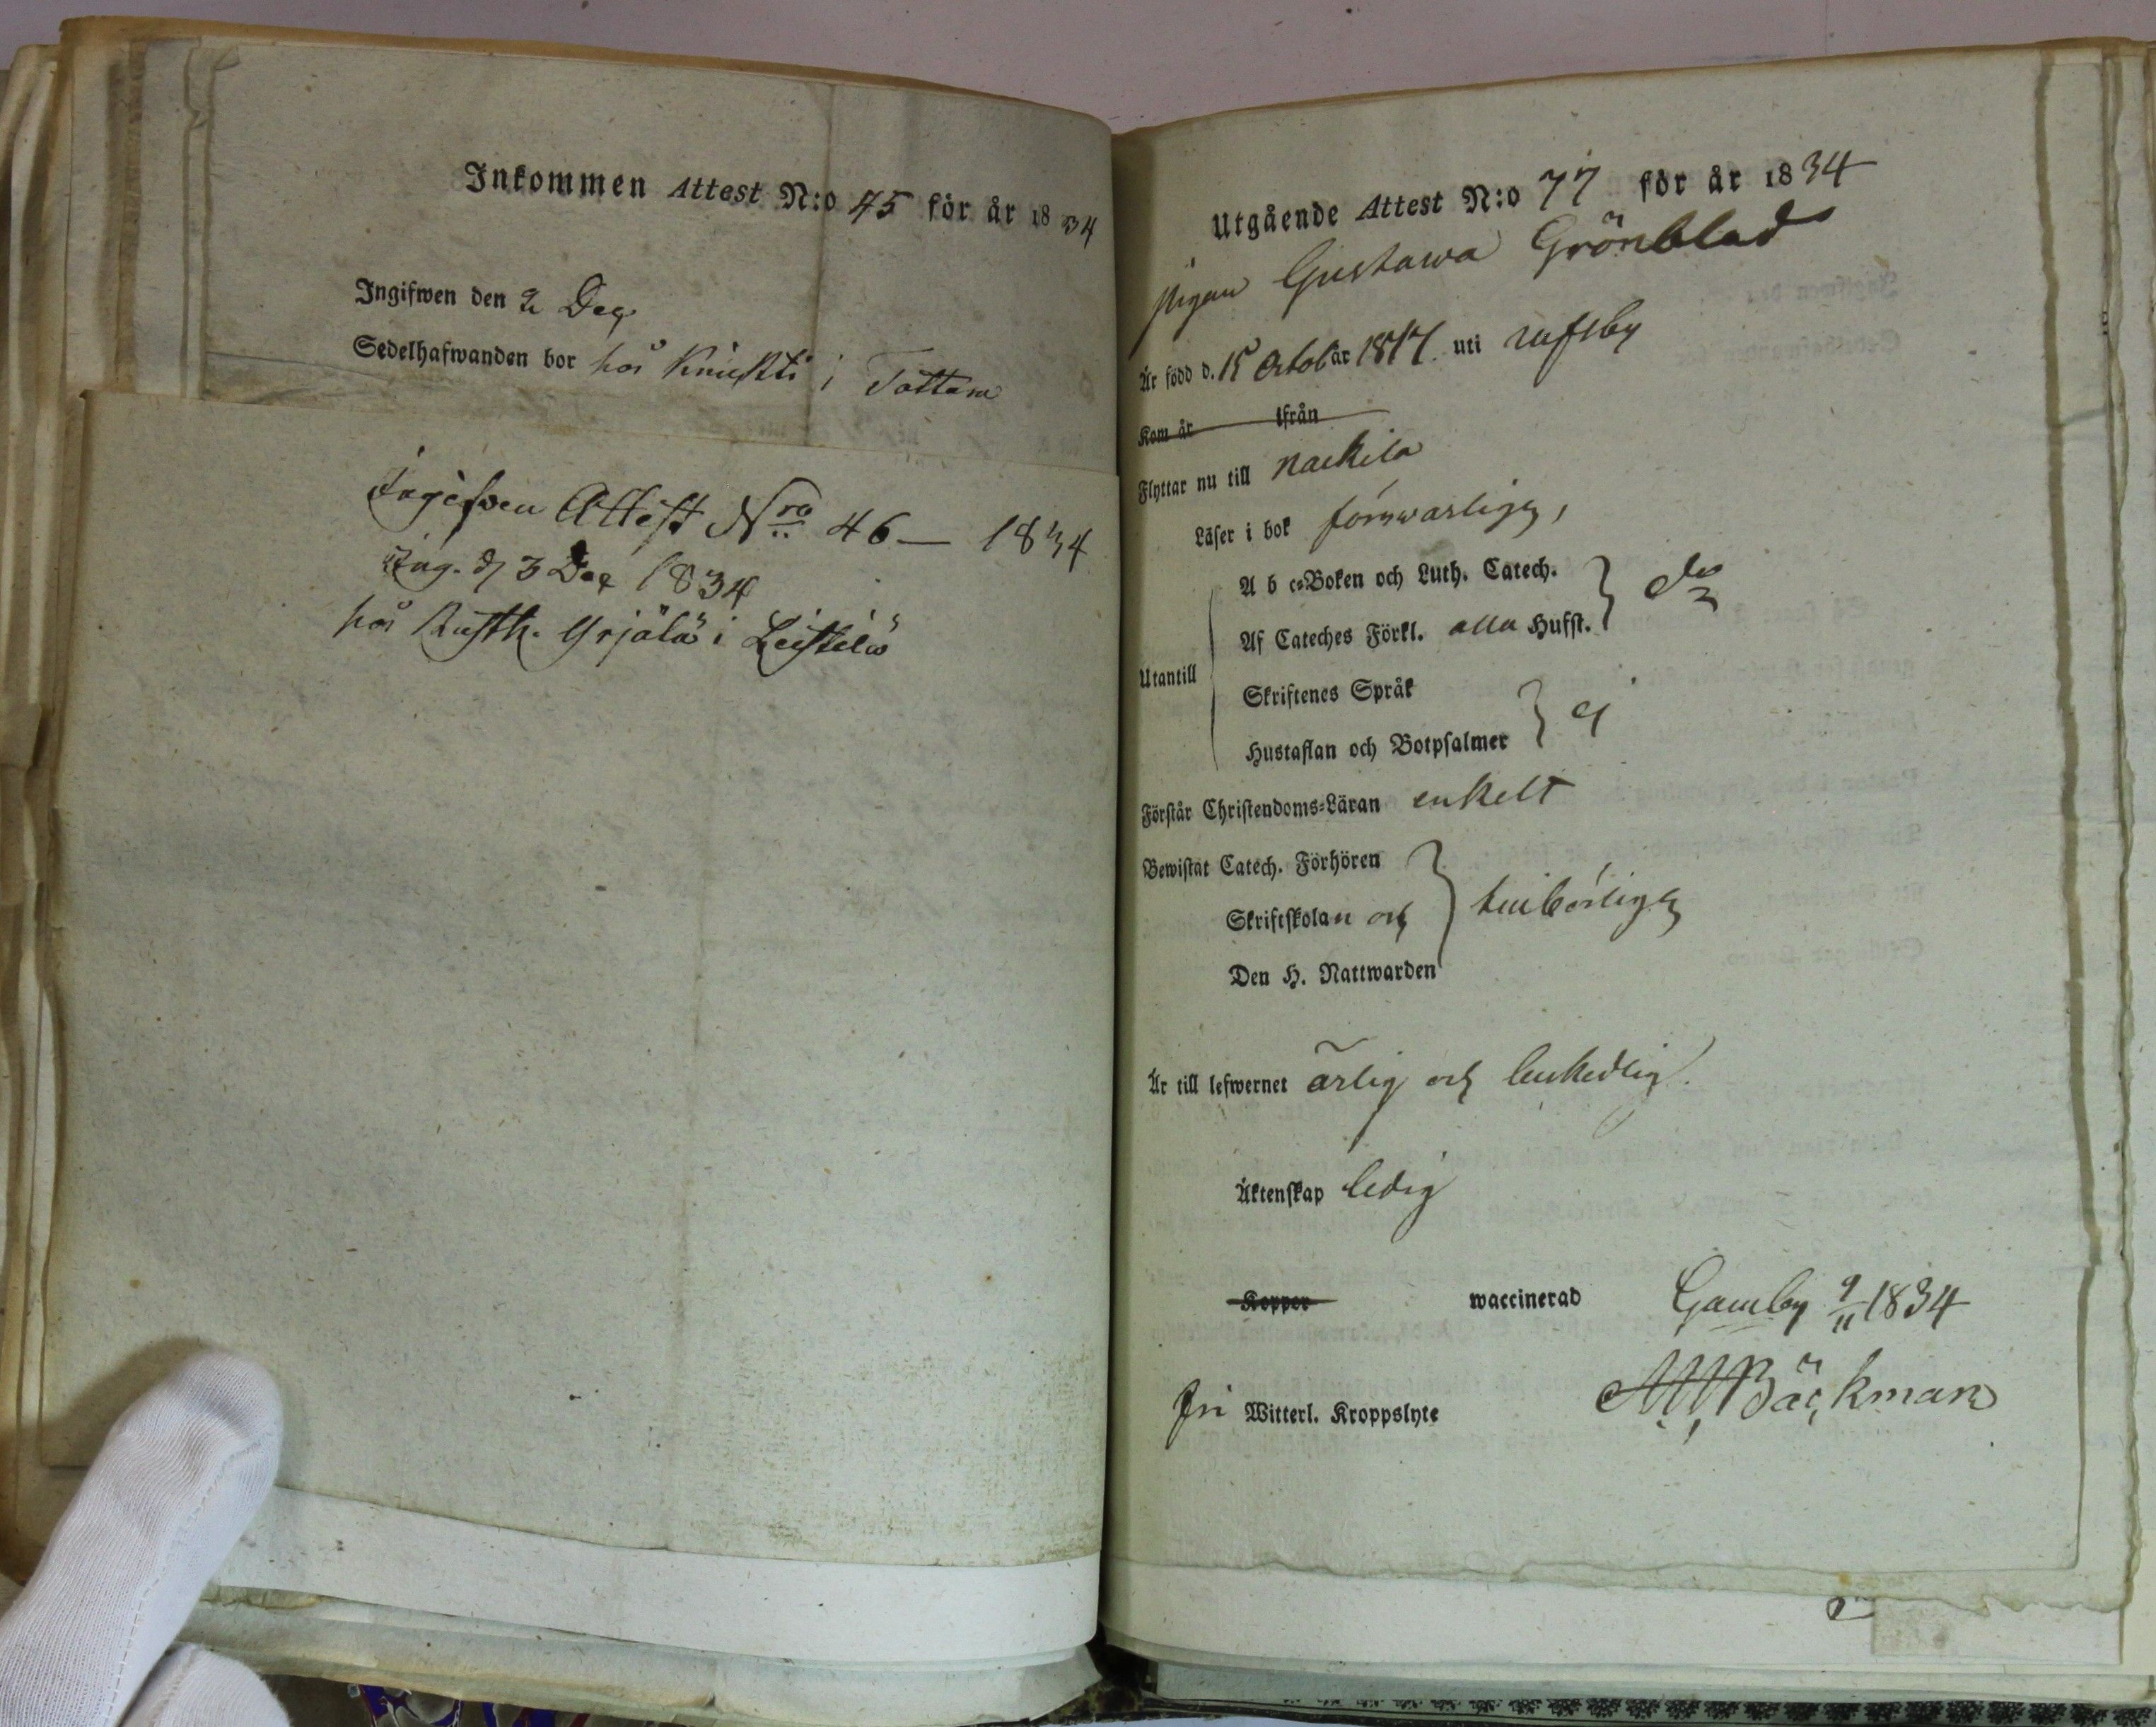 Inkommen Attest N:o 45 för år 1834
Ingifwen den 2 Dec
Sedelhafwanden bor hos Knuhti i Tattara
Ingifven Attest Nro 46 — 1834
Ing. d 3 Dec 1834
hos Rusth. Yrjälä i Leistilä
Utgående Attest N:o 77 för år 1834
Pigan Gustawa Grönblad
Är född d. 15 Octob år 1817 uti Rufsby
Kom år ifrån
Flyttar nu till Nackila
Läser i bok försvarligen,
A b c-Boken och Luth. Catech.
Af Cateches Förkl. alla Hufst. do
Utantill
Skriftenes Språk
Hustaflan och Botpsalmer ej
Förstår Christendoms-Läran enkelt
Bewistat Catech. Förhören
Skriftskolan och tillbörligen
Den H. Nattwarden
Är till lefwernet ärlig och beskedlig.
Äktenskap ledig
Koppor waccinerad Gamby 9/11 1834
fri Witterl. Kroppslyte Bäckman